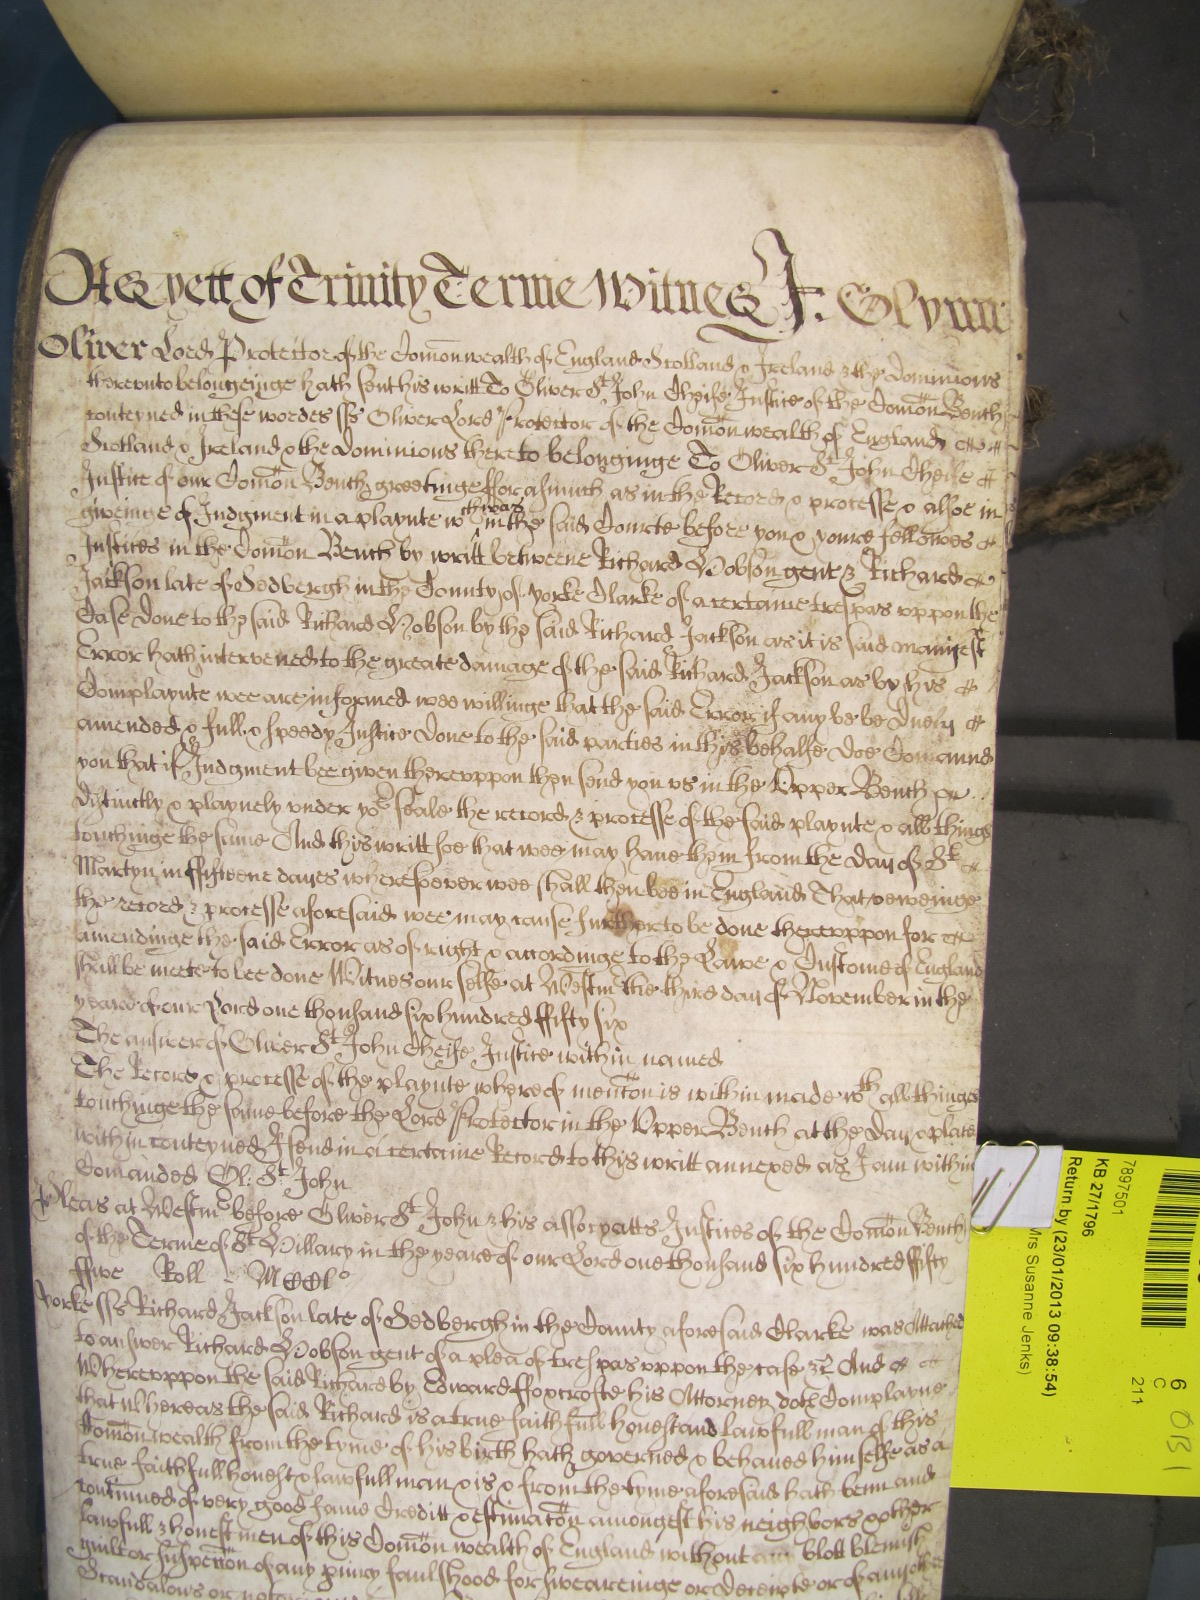 As yett of Trinity Terme Witnes J. Glynn
Oliver Lord Protector of the Comonwealth of England Scotland & Ireland & the Dominions
thereunto belongeinge hath sent his writt To Oliver St John Cheife Justice of the Comon Bench
conteyned in these wordes ss Oliver Lord Protector of the Comonwealth of England
Scotland & Ireland & the Dominions thereto belonginge To Oliver St John Cheife
Justice of our Comon Bench greetinge fforasmuch as in the Record & processe & alsoe in
giveinge of Judgment in a playnte wch was in the said Courte before you & youre fellowes
Justices in the Comon Bench by writt betweene Richard Hobson gent & Richard
Jackson late of Sedbergh in the County of Yorke Clarke of a certaine trespas uppon the
Case done to the said Richard Hobson by the said Richard Jackson as it is said manifest
Error hath intervened to the greate damage of the said Richard Jackson as by his
Complaynte wee are informed wee willinge that the said Error if any be be duely
amended & full & speedy Justice done to the said parties in this behalfe doe Comannd
you that if Judgment bee given thereuppon then send you us in the Upper Bench
distinctly & playnely under yor seale the record & processe of the said playnte & all things
touchinge the same And this writt soe that wee may have them from the day of St
Martyn in ffifteene dayes wheresoever wee shall then bee in England That veweinge
the record & processe aforesaid wee may cause further to be done thereuppon for
amendinge the said Error as of right & accordinge to the Lawe & Custome of England
shall be meete to bee done Witnes our selfe at Westmr the third day of November in the
yeare of our Lord one thousand six hundred ffifty six
The answer of Oliver St John Cheife Justice within named
The Record & processe of the playnte whereof mencon is within made wth all things
touchinge the same before the Lord Protector in the Upper Bench at the day & place
within conteyned I send in a certaine Record to this writt annexed as I am within
Comanded Ol: St John
Pleas at Westmr before Oliver St John & his assocyatts Justices of the Comon Bench
of the Terme of St Hillary in the yeare of our Lord one thousand six hundred ffifty
ffive Roll MCCLo
Yorke ss Richard Jackson late of Sedbergh in the County aforesaid Clarke was Attached
to answer Richard Hobson gent of a plea of trespas uppon the case &c And
Whereuppon the said Richard by Edward ffoxcrofte his Attorney doth Complayne
that whereas the said Richard is a true faithfull honest and lawfull man of this
Comonwealth from the tyme of his birth hath governed & behaved himselfe as a
true faithfull honest & lawfull man & is & from the tyme aforesaid hath benn and
continued of very good fame Creditt & estimacon amongest his neighbors & other
lawfull & honest men of this Comonwealth of England without blott blemish
guilt or suspecon of any piury faulshood forsweareinge or deceipte or of any other
Scandalows or
7897501
KB 27/1796
Return by (23/01/2013 09:38:54)
Mrs Susanne Jenks)
6
C
211